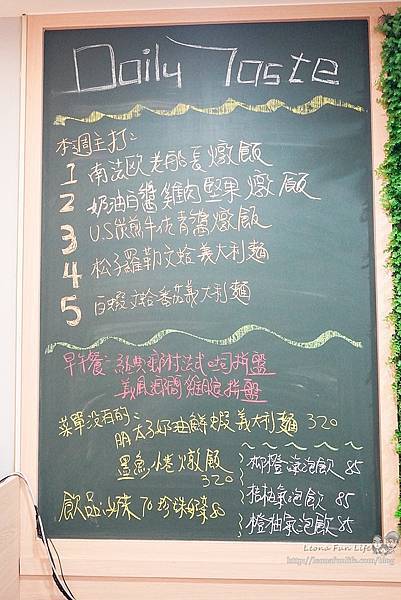 Daily Taste
本週主打:
1 南法歐老船長燉飯
2 奶油白醬雞肉堅果燉飯
3 US炭煎牛佐青醬燉飯
4 松子羅勒文蛤義大利麵
5 白蝦文蛤番茄義大利麵
早午餐:經典 法式吐司拼盤
拼盤
菜單沒有的:
明太子奶油鮮蝦義大利麵 320
墨魚 燉飯
320
飲品 奶茶 70 珍珠奶茶 80
柳橙 氣泡飲 85
桔柚氣泡飲 85
橙柚氣泡飲 85
Leona Fun Life
http://leonafunlife.com/